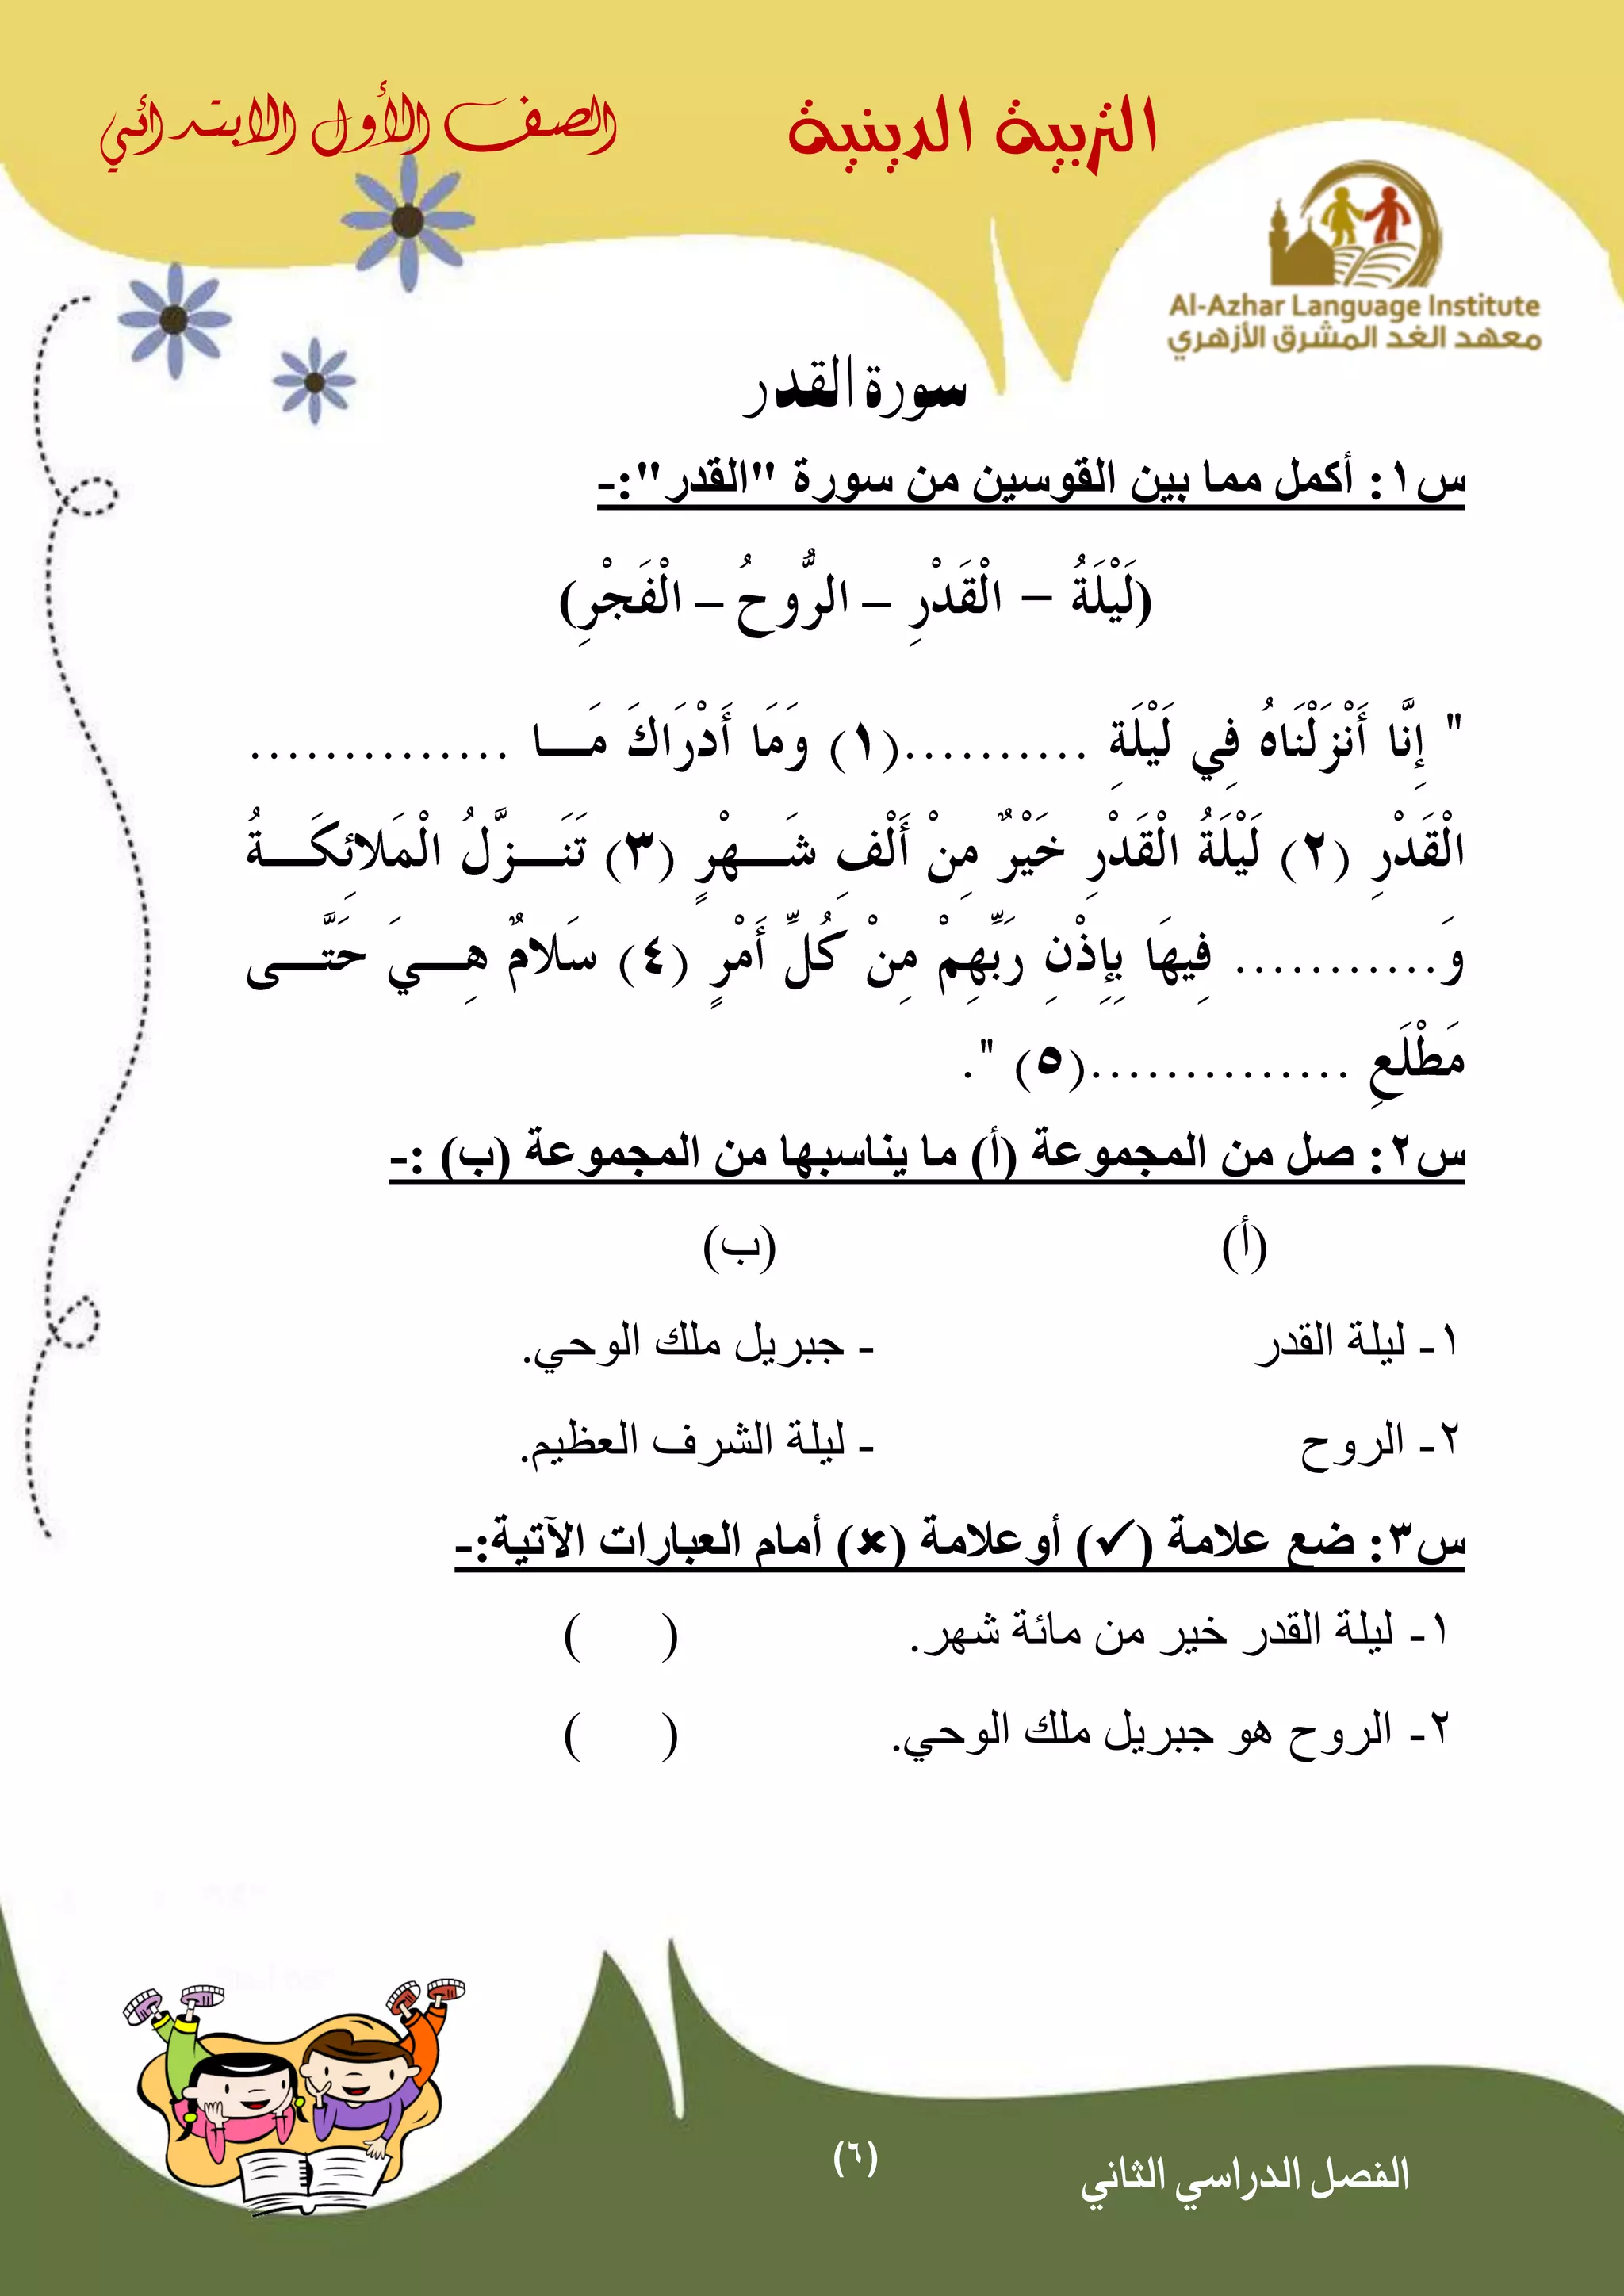 التربية الدينية الصف الأول الابتدائي
Al-Azhar Language Institute
معهد الغد المشرق الأزهري
سورة القدر
س١: أكمل مما بين القوسين من سورة "القدر":-
(لَيْلَةُ – الْقَدْرِ – الرُّوحُ – الْفَجْرِ)
" إِنَّا أَنْزَلْنَاهُ فِي لَيْلَةِ ..........(١) وَمَا أَدْرَاكَ مَـــا ..............
الْقَدْرِ (٢) لَيْلَةُ الْقَدْرِ خَيْرٌ مِنْ أَلْفِ شَـــهْرٍ (٣) تَنَـــزَّلُ الْمَلائِكَـــةُ
وَ........... فِيهَا بِإِذْنِ رَبِّهِمْ مِنْ كُلِّ أَمْرٍ (٤) سَلامٌ هِـــيَ حَتَّـــى
مَطْلَعِ ..............(٥) ".
س٢: صل من المجموعة (أ) ما يناسبها من المجموعة (ب) :-
(أ) (ب)
١- ليلة القدر - جبريل ملك الوحي.
٢- الروح - ليلة الشرف العظيم.
س٣: ضع علامة (✓) أوعلامة (×) أمام العبارات الآتية:-
١- ليلة القدر خير من مائة شهر. ( )
٢- الروح هو جبريل ملك الوحي. ( )
الفصل الدراسي الثاني (٦)